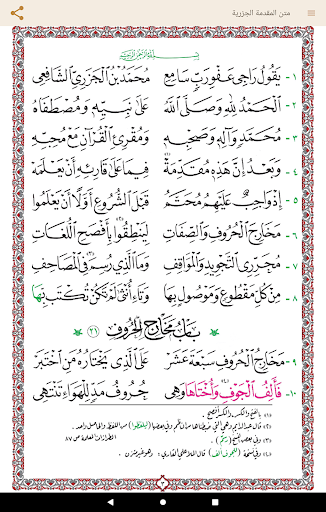 متن المقدمة الجزرية
بِسْمِ اللَّهِ الرَّحْمَنِ الرَّحِيمِ
١- يَقُولُ رَاجِي عَفْوِ رَبٍّ سَامِعِ مُحَمَّدُ بْنُ الْجَزَرِيِّ الشَّافِعِي
٢- الْحَمْدُ لِلَّهِ وَصَلَّى اللَّهُ عَلَى نَبِيِّهِ وَمُصْطَفَاهُ
٣- مُحَمَّدٍ وَآلِهِ وَصَحْبِهِ وَمُقْرِئِ الْقُرْآنِ مَعْ مُحِبِّهِ
٤- وَبَعْدُ إِنَّ هَذِهِ مُقَدِّمَهْ فِيمَا عَلَى قَارِئِهِ أَنْ يَعْلَمَهْ
٥- إِذْ وَاجِبٌ عَلَيْهِمُ مُحَتَّمُ قَبْلَ الشُّرُوعِ أَوَّلًا أَنْ يَعْلَمُوا
٦- مَخَارِجَ الْحُرُوفِ وَالصِّفَاتِ لِيَنْطِقُوا بِأَفْصَحِ اللُّغَاتِ
٧- مُحَرِّرِي التَّجْوِيدِ وَالْمَوَاقِفِ وَمَا الَّذِي رُسِمَ فِي الْمَصَاحِفِ
٨- مِنْ كُلِّ مَقْطُوعٍ وَمَوْصُولٍ بِهَا وَتَاءِ أُنْثَى لَمْ تَكُنْ تُكْتَبْ بِهَا
بَابُ مَخَارِجِ الْحُرُوفِ
٩- مَخَارِجُ الْحُرُوفِ سَبْعَةَ عَشَرْ عَلَى الَّذِي يَخْتَارُهُ مَنِ اخْتَبَرْ
١٠- فَأَلِفُ الْجَوْفِ وَأُخْتَاهَا وَهِي حُرُوفُ مَدٍّ لِلْهَوَاءِ تَنْتَهِي